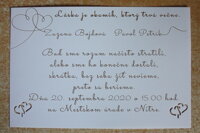 Láska je okamih, ktorý trvá večne.
Zuzana Bajdová Pavol Petrík
Buď sme rozum načisto stratili,
alebo sme ho konečne dostali,
skrátka, bez seba žiť nevieme,
preto sa berieme.
Dňa 20. septembra 2020 o 15.00 hod.
na Mestskom úrade v Nitre.